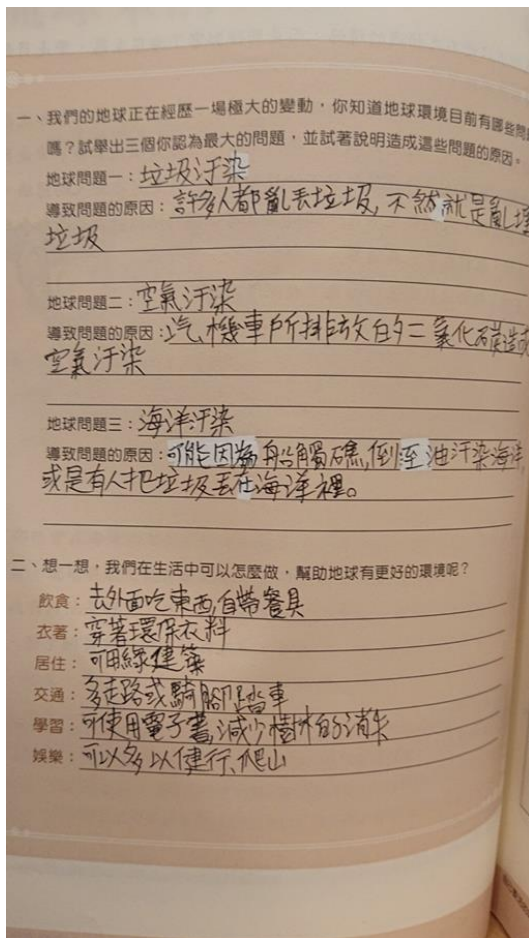 一、我們的地球正在經歷一場極大的變動，你知道地球環境目前有哪些問
嗎？試舉出三個你認為最大的問題，並試著說明造成這些問題的原因。
地球問題一：垃圾汙染
導致問題的原因：許多人都亂丟垃圾，不然就是亂埋
垃圾
地球問題二：空氣汙染
導致問題的原因：汽、機車所排放的二氧化碳造成
空氣汙染
地球問題三：海洋汙染
導致問題的原因：可能因為船觸礁，倒至油汙染海洋，
或是有人把垃圾丟在海洋裡。
二、想一想，我們在生活中可以怎麼做，幫助地球有更好的環境呢？
飲食：去外面吃東西，自帶餐具
衣著：穿著環保衣料
居住：可用綠建築
交通：多走路或騎腳踏車
學習：可使用電子書，減少樹木的消失
娛樂：可以多以健行、爬山